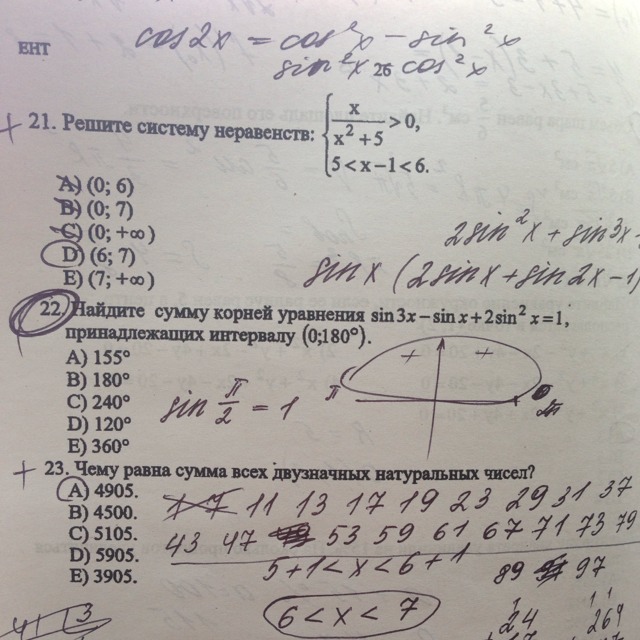 cos2x = cos²x − sin²x
ЕНТ
sin²x 26 cos²x
+ 21. Решите систему неравенств: { x / (x² + 5) > 0,
5 < x − 1 < 6.
A) (0; 6)
B) (0; 7)
C) (0; +∞)
D) (6; 7)
E) (7; +∞)
2sin²x + sin3x −
sinx (2sinx + sin2x − 1)
22. Найдите сумму корней уравнения sin 3x − sin x + 2 sin² x = 1,
принадлежащих интервалу (0;180°).
A) 155°
B) 180°
C) 240°
D) 120°
E) 360°
sin π/2 = 1
+ ++
π 2π
+ 23. Чему равна сумма всех двузначных натуральных чисел?
A) 4905.
B) 4500.
C) 5105.
D) 5905.
E) 3905.
11 13 17 19 23 29 31 37
43 47 53 59 61 67 71 73 79
5+1 < x < 6+1 89 97
6 < x < 7
24 269